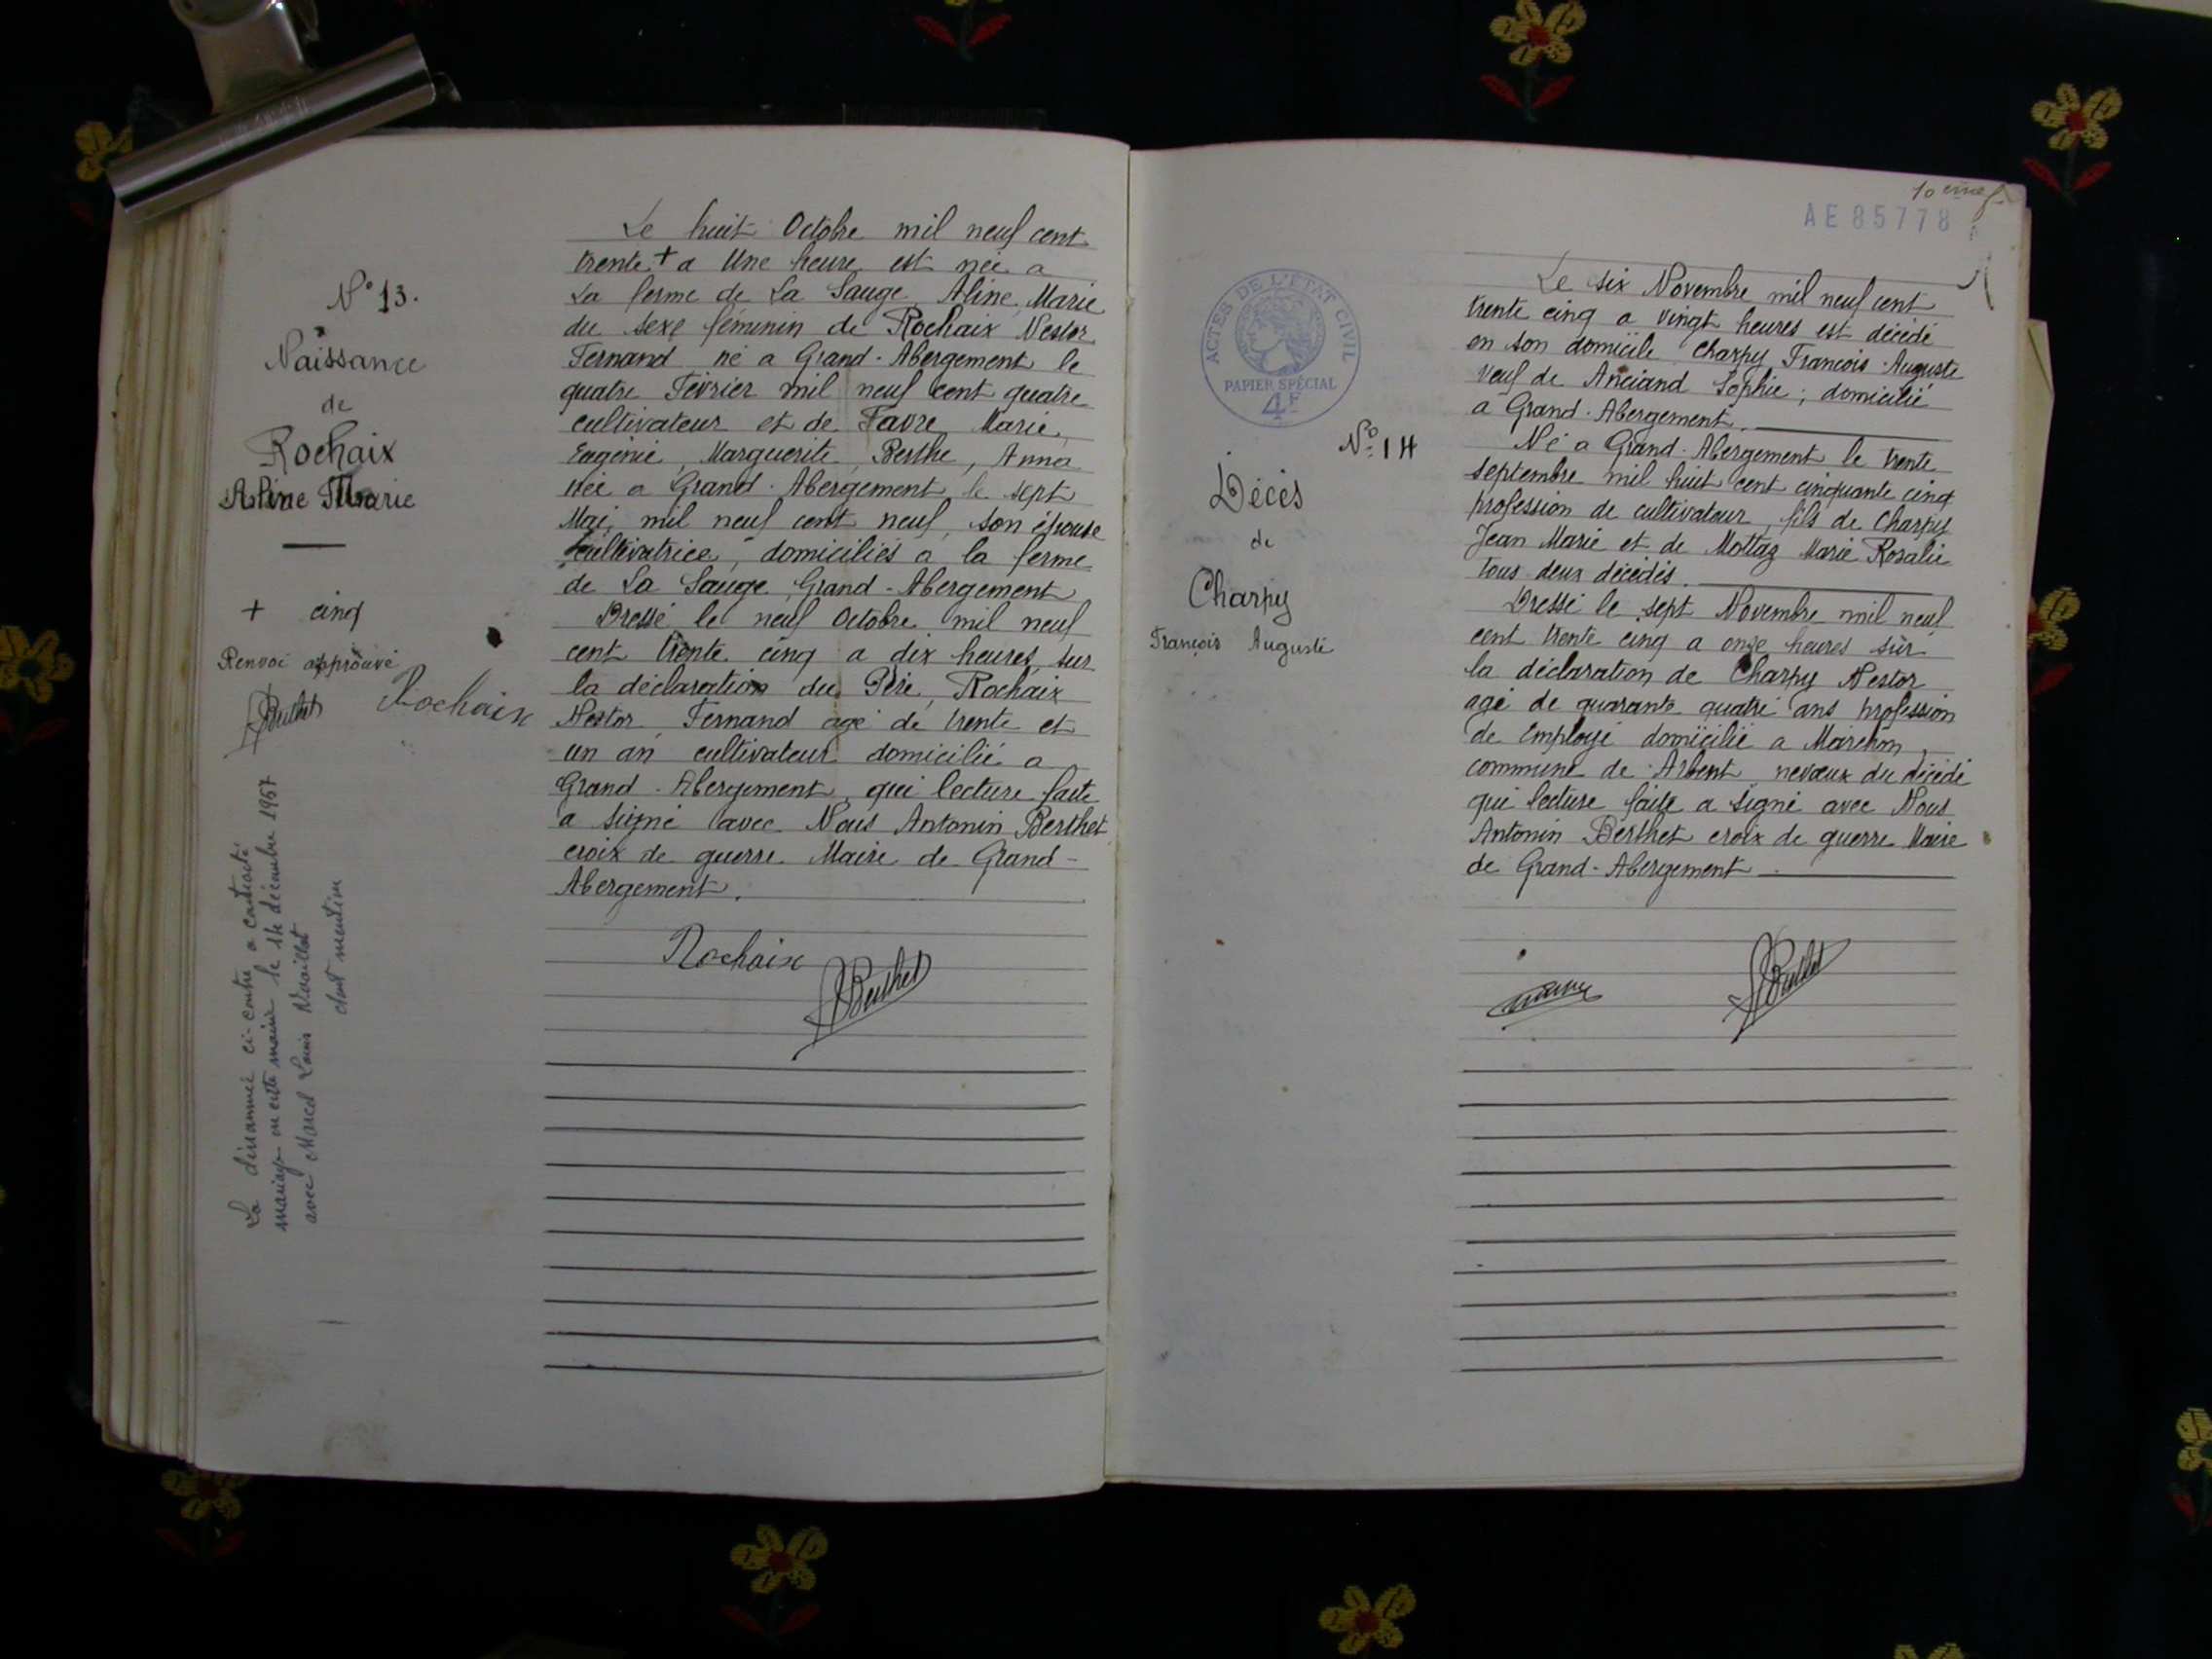 N° 13.
Naissance
de
Rochaix
Aline Marie
+ cinq
Renvoi approuvé
Berthet Rochaix
La dénommée ci-contre a contracté
mariage en cette mairie le 14 décembre 1957
avec Marcel Louis
dont mention
Le huit Octobre mil neuf cent
trente + a Une heure est née a
La ferme de La Sauge, Aline, Marie
du sexe féminin de Rochaix Nestor
Fernand né a Grand-Abergement le
quatre Février mil neuf cent quatre
cultivateur et de Favre, Marie,
Eugénie, Marguerite, Berthe, Anna
née a Grand-Abergement le sept
Mai, mil neuf cent neuf, son épouse
cultivatrice, domiciliés a la ferme
de La Sauge Grand-Abergement
Dressé le neuf Octobre mil neuf
cent trente cinq a dix heures, sur
la déclaration du Père, Rochaix
Nestor Fernand agé de trente et
un an cultivateur domicilié a
Grand-Abergement, qui lecture faite
a signé avec Nous Antonin Berthet
croix de guerre Maire de Grand-
Abergement.
Rochaix
Berthet
10 eme f.
AE 85778
ACTES DE L'ETAT CIVIL
PAPIER SPÉCIAL
4F
N° 14
Décès
de
Charpy
François Auguste
Le six Novembre mil neuf cent
trente cinq a vingt heures est décédé
en son domicile Charpy François-Auguste
veuf de Anciand Sophie; domicilié
a Grand-Abergement.
Né a Grand-Abergement le trente
septembre mil huit cent cinquante cinq
profession de cultivateur, fils de Charpy
Jean Marie et de Mottaz Marie Rosalie
tous deux décédés.
Dressé le sept Novembre mil neuf
cent trente cinq a onze heures sur
la déclaration de Charpy Nestor
agé de quarante quatre ans profession
de Employé domicilié a Marchon,
commune de Arbent neveux du décédé
qui lecture faite a signé avec Nous
Antonin Berthet croix de guerre Maire
de Grand-Abergement
Berthet